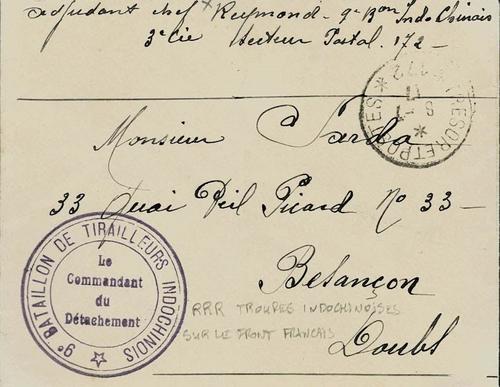 adjudant chef Reymond - 9e Bon Indo Chinois
3e Cie Secteur Postal. 172 -
TRESOR ET POSTES
* 172 *
8 - 7
17
Monsieur Sarda
33 Quai Veil Picard No 33 -
Besançon
Doubs
9e BATAILLON DE TIRAILLEURS INDOCHINOIS
Le
Commandant
du
Détachement
RRR TROUPES INDOCHINOISES
SUR LE FRONT FRANCAIS